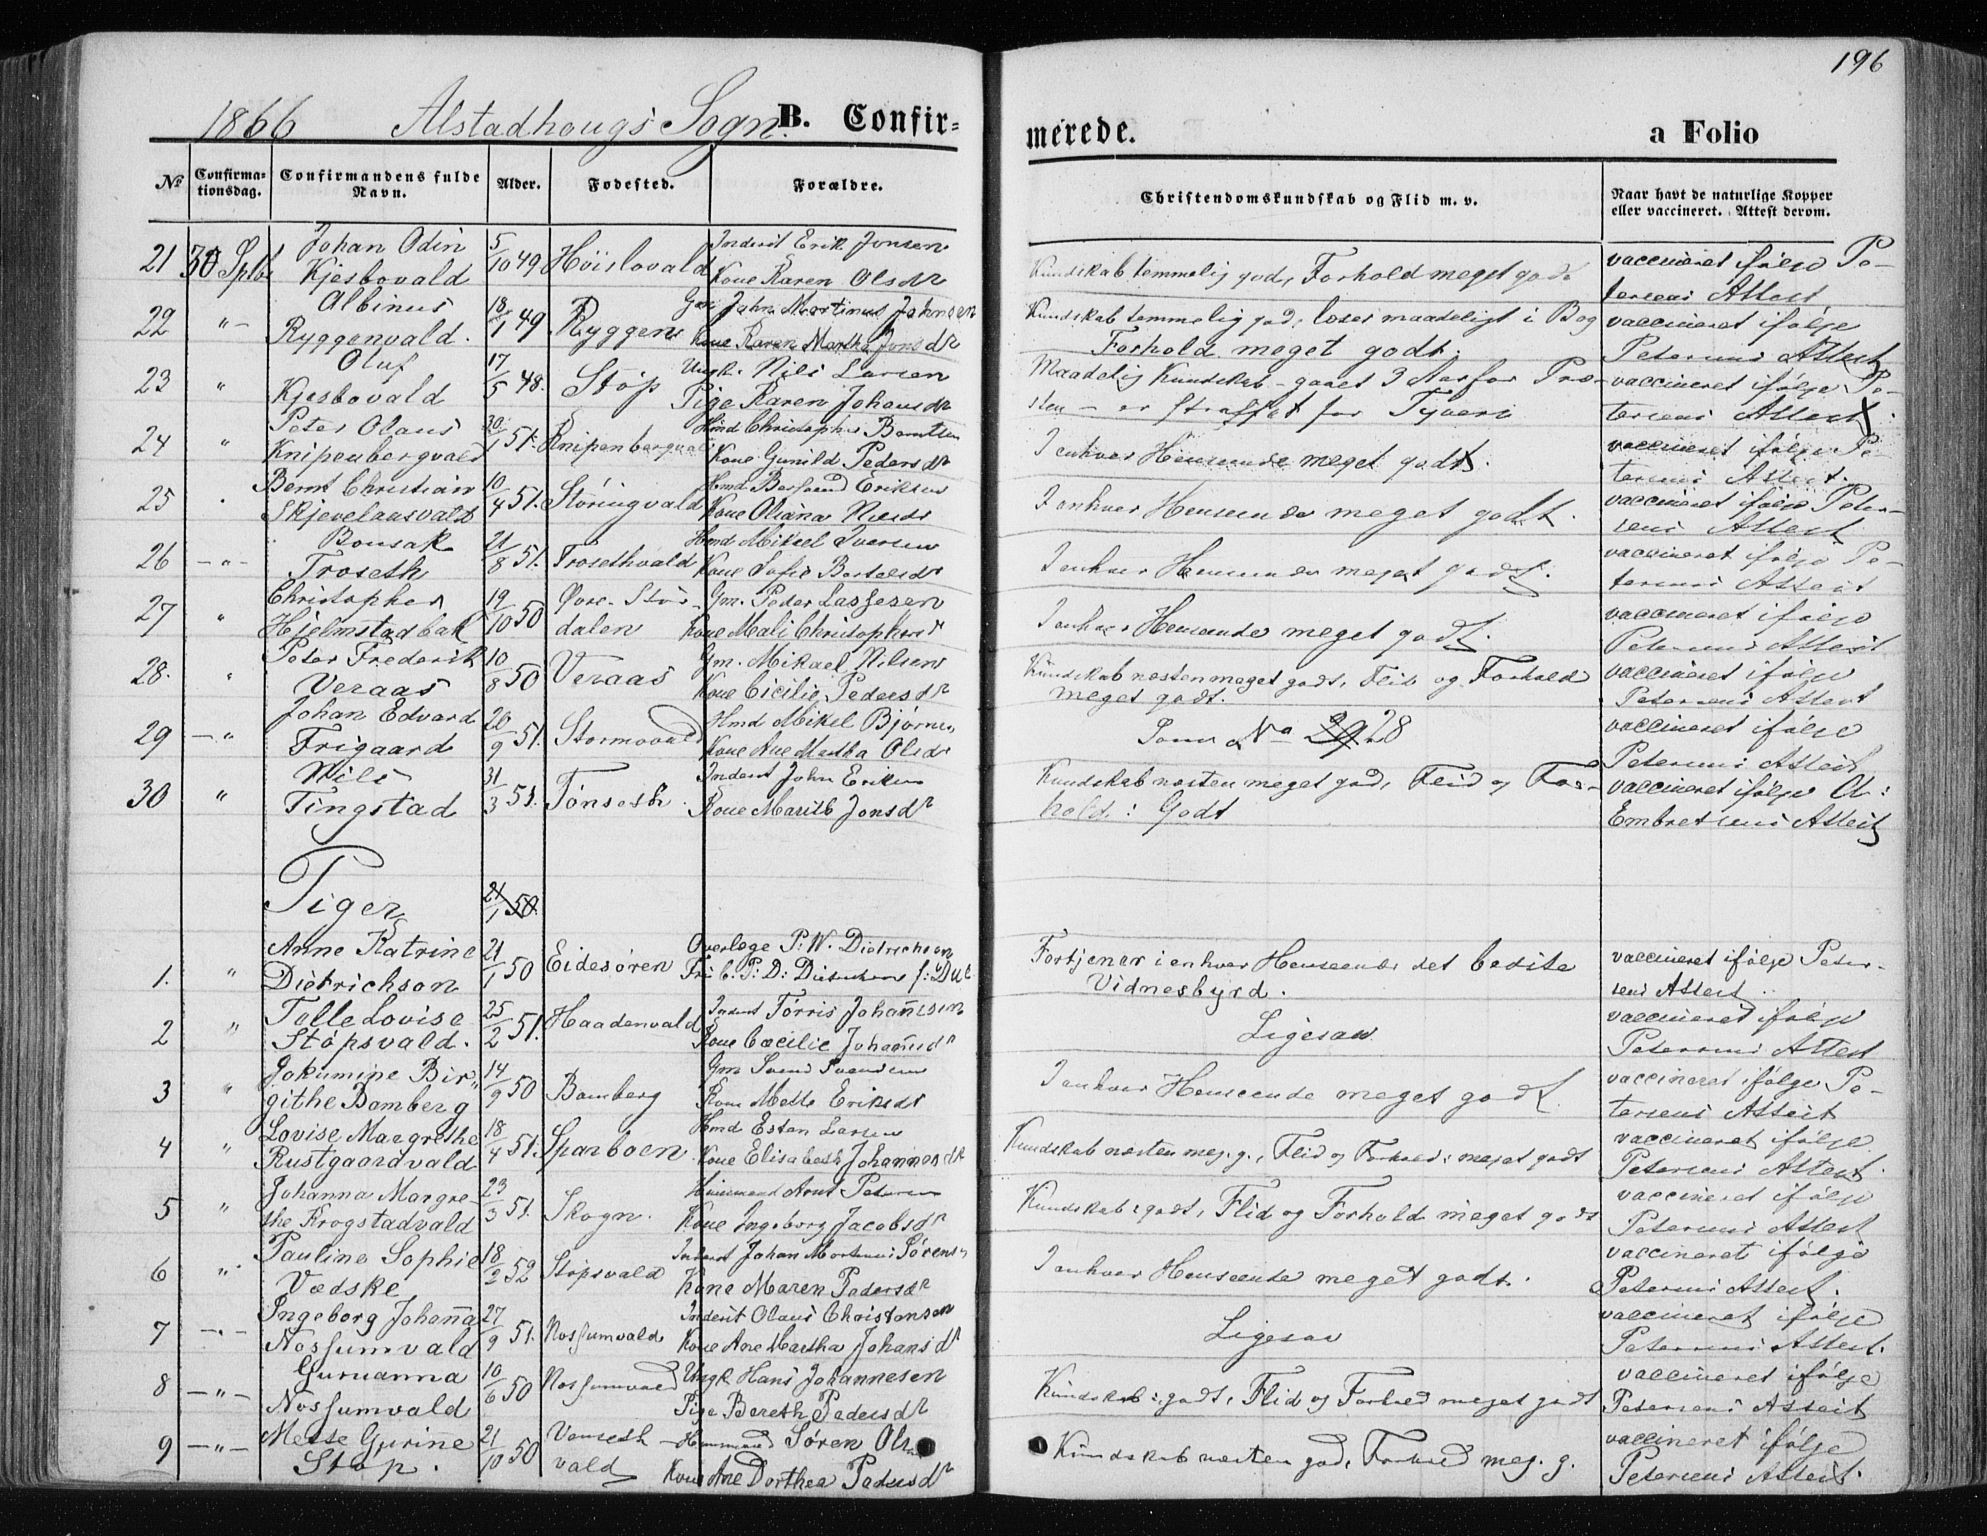 196
1866 Alstadhougs Sogn. B. Confir=
merede. a Folio
No Confirma= tionsdag. Confirmandens fulde Navn. Alder. Fødested. Forældre.
Christendomskundskab og Flid m. v. Naar havt de naturlige Kopper eller vaccineret. Attest derom.
21 30 Sptbr Johan Odin 5/10 49 Höislovald Inderst Erik Jonsen Kundskab temmelig god, Forhold meget godt vaccineret ifölge Pe-
Kjesbovald Kone Karen Olsdr tersens Attest
22 -"- Albinus 18/1 49 Ryggen Gm John Martinus Johnsen Kundskab temmelig god, læser maadeligt i Bog vaccineret ifölge
Ryggenvald. Kone Karen Martha Jonsdr Forhold meget godt. Petersens Attest
23 " Oluf 17/5 48. Stöp Ungk. Nils Larsen Maadelig Kundskab - gaaet 3 Aar for Præ- vaccineret ifölge Pe-
Kjesbovald Pige Karen Johansdr sten - er straffet for Tyveri tersens Attest
24 " Peter Olaus 30/1 51. Knipenbergvald Hmd Christopher Berntsen I enhver Henseende meget godt. vaccineret ifölge Pe-
Knipenbergvald Kone Gunild Pedersdr tersens Attest.
25 . Bernt Christian 10/4 51. Störingvald Hmd Eriksen I enhver Henseende meget godt. vaccineret ifölge Peter-
Skjevelausvald Kone Oliana Nilsdr sens Attest
26 -"- Bonsak 21/8 51. Trosethvald Hmd Mikael Iversen I enhver Henseende meget godt. vaccineret ifölge Pe-
Troseth Kone Sofie Bertelsdr tersens Attest
27 " Christopher 19/10 50 Övre-Stör- Gm. Peder Lassesen I enhver Henseende meget godt. vaccineret ifölge
Hjelmstadbak dalen Kone Mali Christophersdr Petersens Attest
28. " Peter Frederik 10/8 50 Veraas Gm. Mikael Nilsen Kundskab næsten meget godt, Flid og Forhold vaccineret ifölge
Veraas Kone Cicilie Pedersdr meget godt. Petersens Attest
29 -"- Johan Edvard 20/9 51. Stormovald Hmd Mikel Björnsen Som No 29 28 vaccineret ifölge
Frigaard Kone Ane Martha Olsdr Petersens Attest
30 " Nils 31/3 51. Tönseth Inderst John Eriksen Kundskab næsten meget god, Flid og For- vaccineret ifölge A:
Tingstad Kone Marith Jonsdr hold: Godt Embretsens Attest
Piger 21/1 50
1. " Anne Katrine 21/1 50 Eidesören Overlæge P: W. Dietrichson Fortjener i enhver Henseende det bedste vaccineret ifölge Peter-
Dietrichson C. P: D: Dietrichson f: Due Vidnesbyrd. sens Attest
2 " Talle Lovise 25/2 51. Haadenvald Inderst Törris Johannesen Ligesaa vaccineret ifölge
Stöpsvald. Kone Cæcilie Johansdr Petersens Attest
3 " Jokumine Bir- 14/9 50 Bamberg Gm Svend Svendsen I enhver Henseende meget godt vaccineret ifölge Pe-
githe Bamberg Kone Mette Eriksdr tersens Attest
4 " Lovise Margrethe 18/4 51. Sparboen. Hmd Esten Larsen Kundskab næsten meg. g., Flid og Forhold: meget godt vaccineret ifölge
Rustgaardvald Kone Elisabeth Johannesdr Petersens Attest.
5 " Johanna Margre- 23/3 51. Skogn. Huusmand Arnt Petersen Kundskab: godt, Flid og Forhold meget godt vaccineret ifölge
the Krogstadvald Kone Ingeborg Jacobsdr Petersens Attest
6 " Pauline Sophie 18/2 52 Stöpsvald Inderst Johan Mortinus Sörensen I enhver Henseende meget godt. vaccineret ifölge
Vedske Kone Maren Pedersdr Petersens Attest.
7 -"- Ingeborg Johanna 27/9 51. Nossumvald Inderst Olaus Christensen Ligesaa vaccineret ifölge
Nossumvald Kone Ane Martha Johansdr Petersens Attest.
8 -"- Guruanna 10/6 50 Nossumvald Ungk Hans Johannesen Kundskab: godt, Flid og Forhold meget godt vaccineret ifölge
Nossumvald Pige Bereth Pedersdr Petersens Attest
9 -"- Mette Gurine 21/10 50 Venseth- Huusmand Sören Ols Kundskab næsten god, Forhold meg. g. vaccineret ifölge
Stöp. vald Kone Ane Dorthea Pedersdr Petersens Attest.